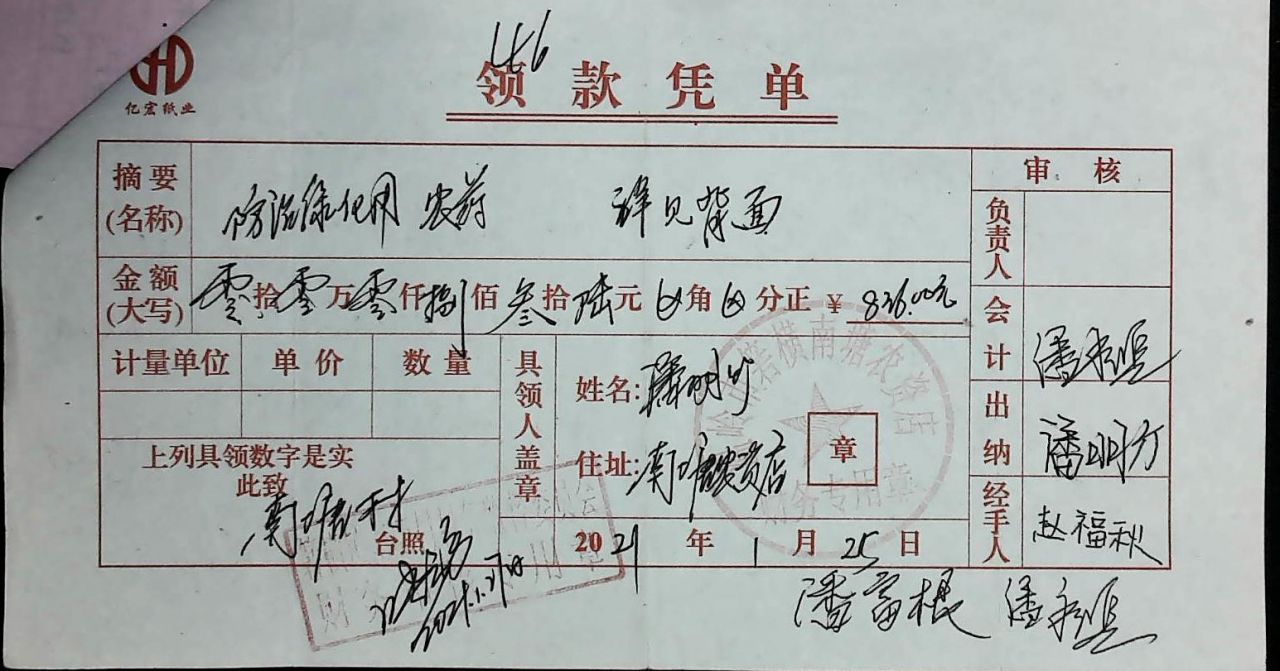 亿宏纸业
领款凭单
审核
摘要(名称) 防治绿化用农药 详见背面
负责人
金额(大写) 零拾零万零仟捌佰叁拾陆元 角 分正 ¥ 836.00元
会计
计量单位 单价 数量
具领人盖章
姓名:
出纳 潘明方
住址: 南塘农资店
章
上列具领数字是实
此致
南塘村
台照
2021年1月25日
经手人 赵福秋
2021.1.27日
潘富根
横南塘农资店
财务专用章